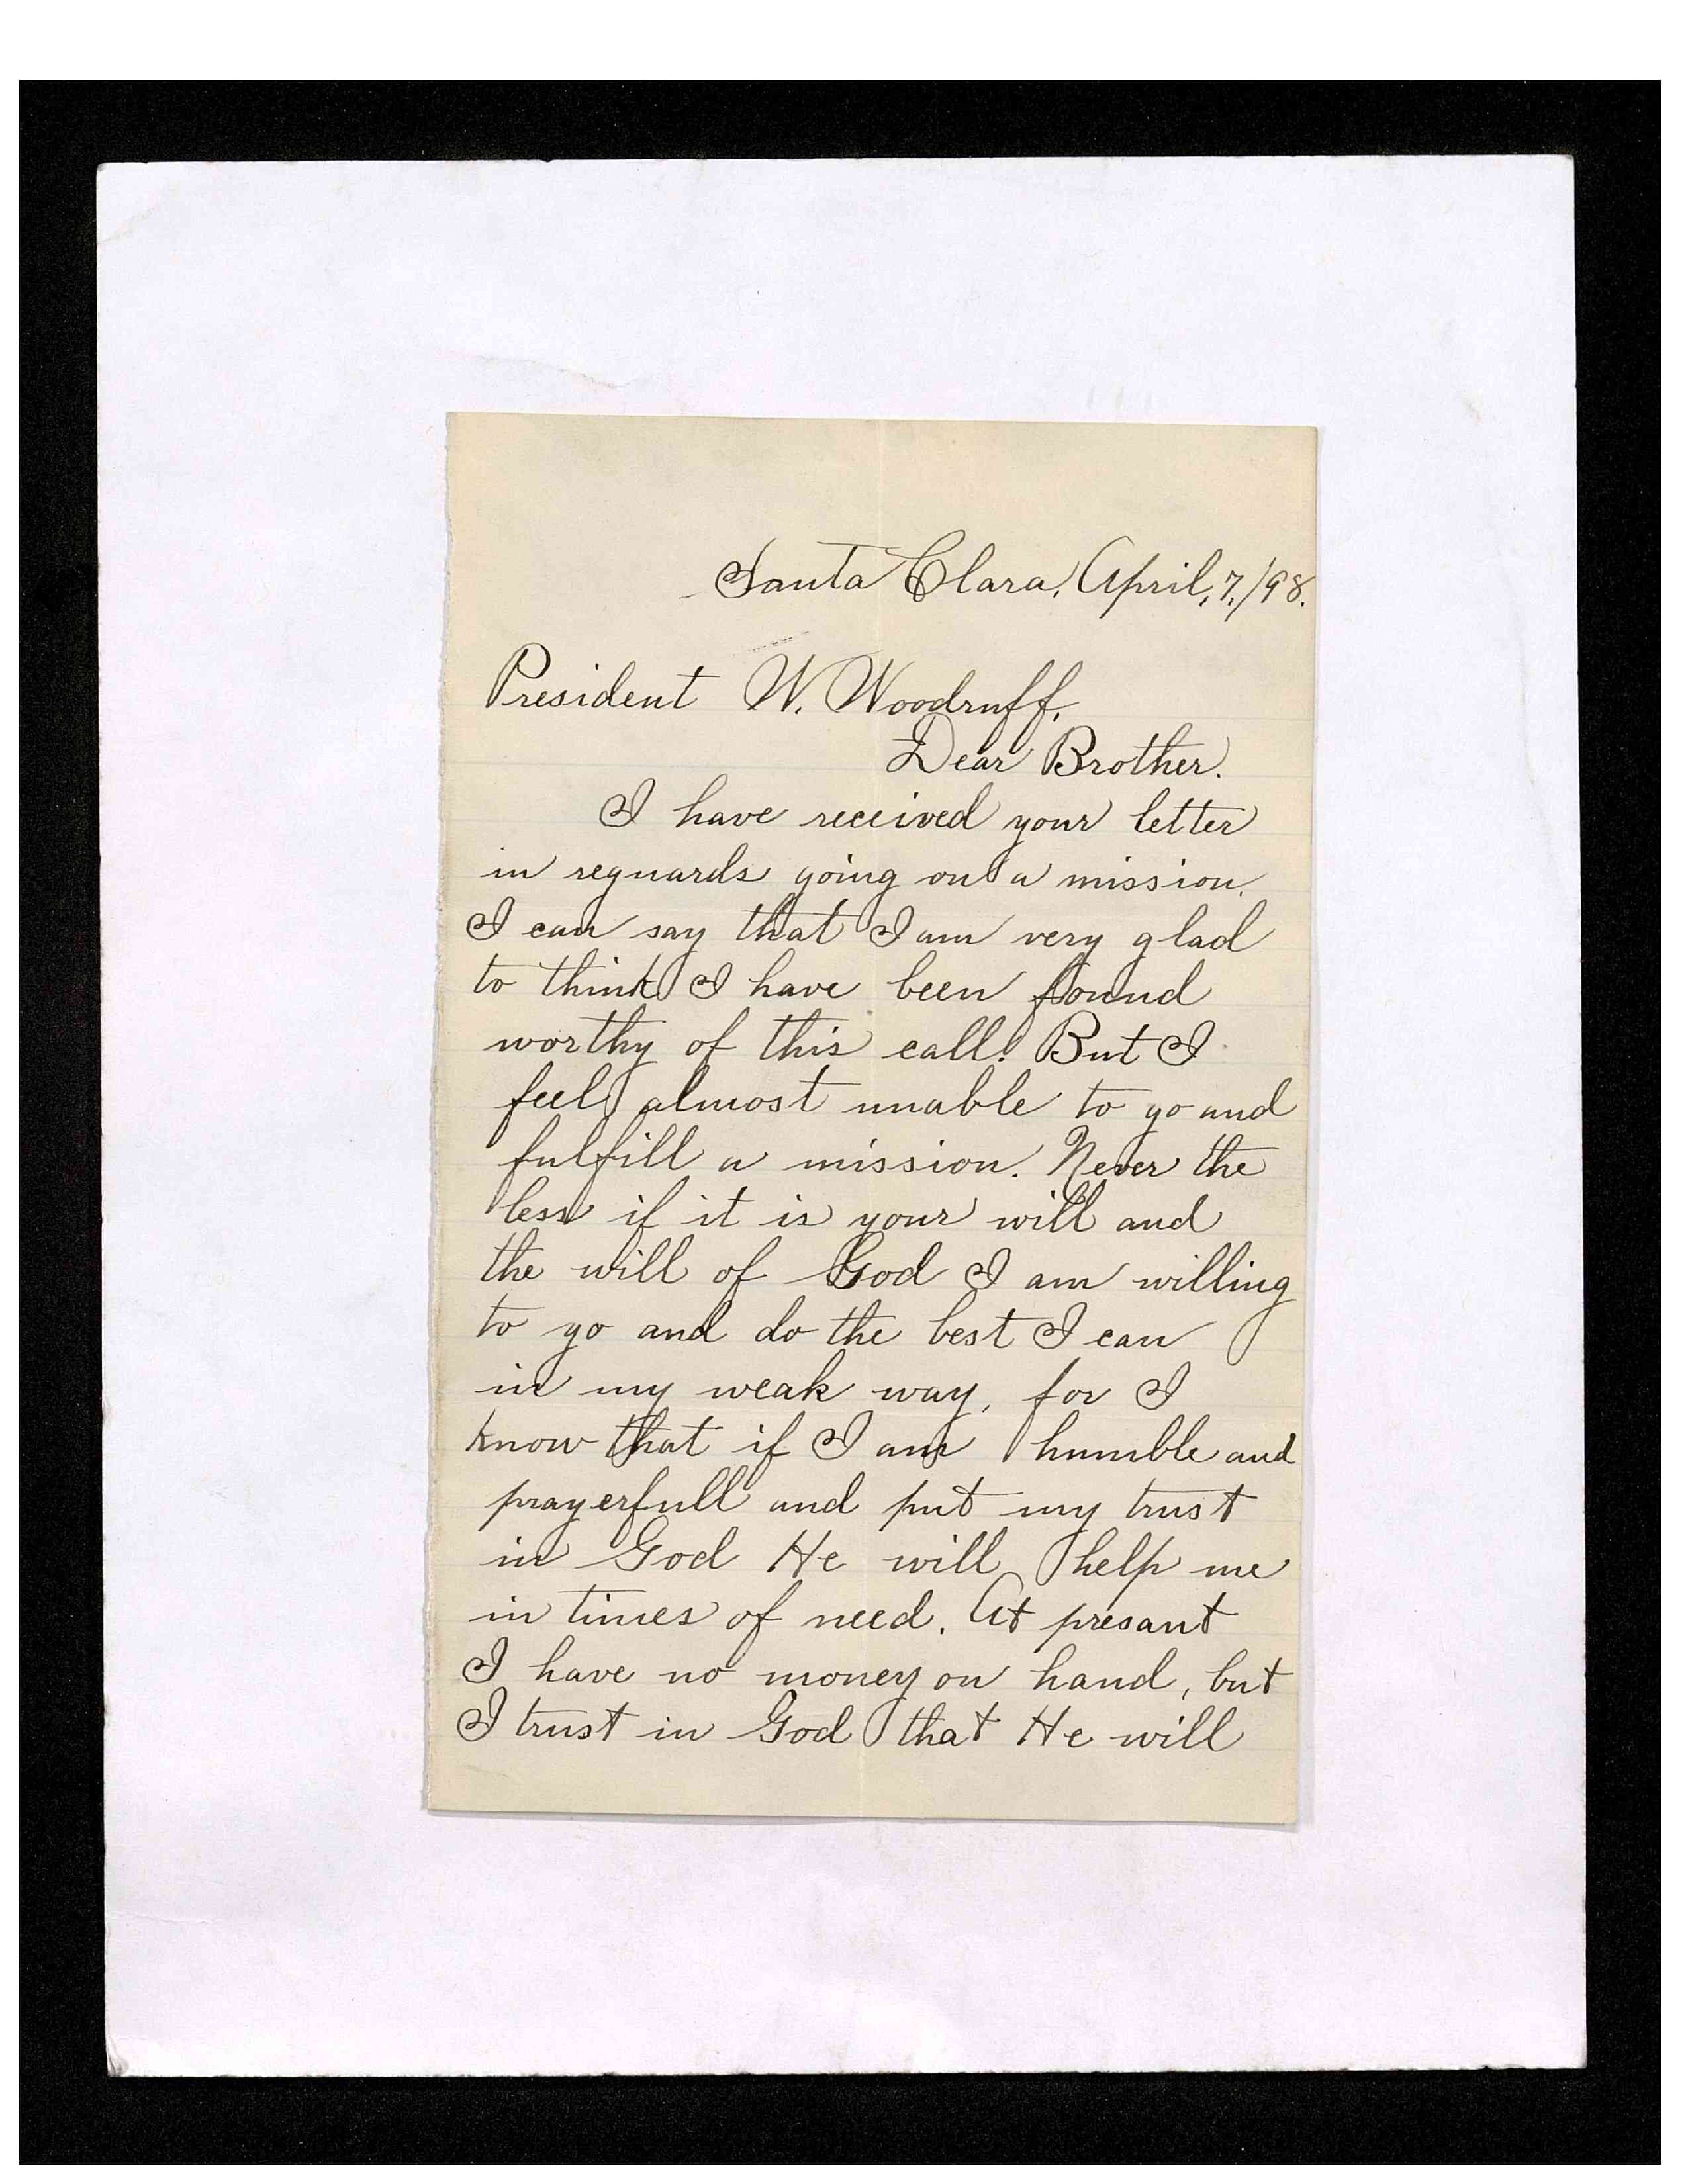 Santa Clara, April, 7, /98.
President W. Woodruff.
Dear Brother.
I have received your letter
in reguards going on a mission.
I can say that I am very glad
to think I have been found
worthy of this call. But I
feel almost unable to go and
fulfill a mission. Never the
less if it is your will and
the will of God I am willing
to go and do the best I can
in my weak way, for I
know that if I am humble and
prayerfull and put my trust
in God He will help me
in times of need. At presant
I have no money on hand, but
I trust in God that He will